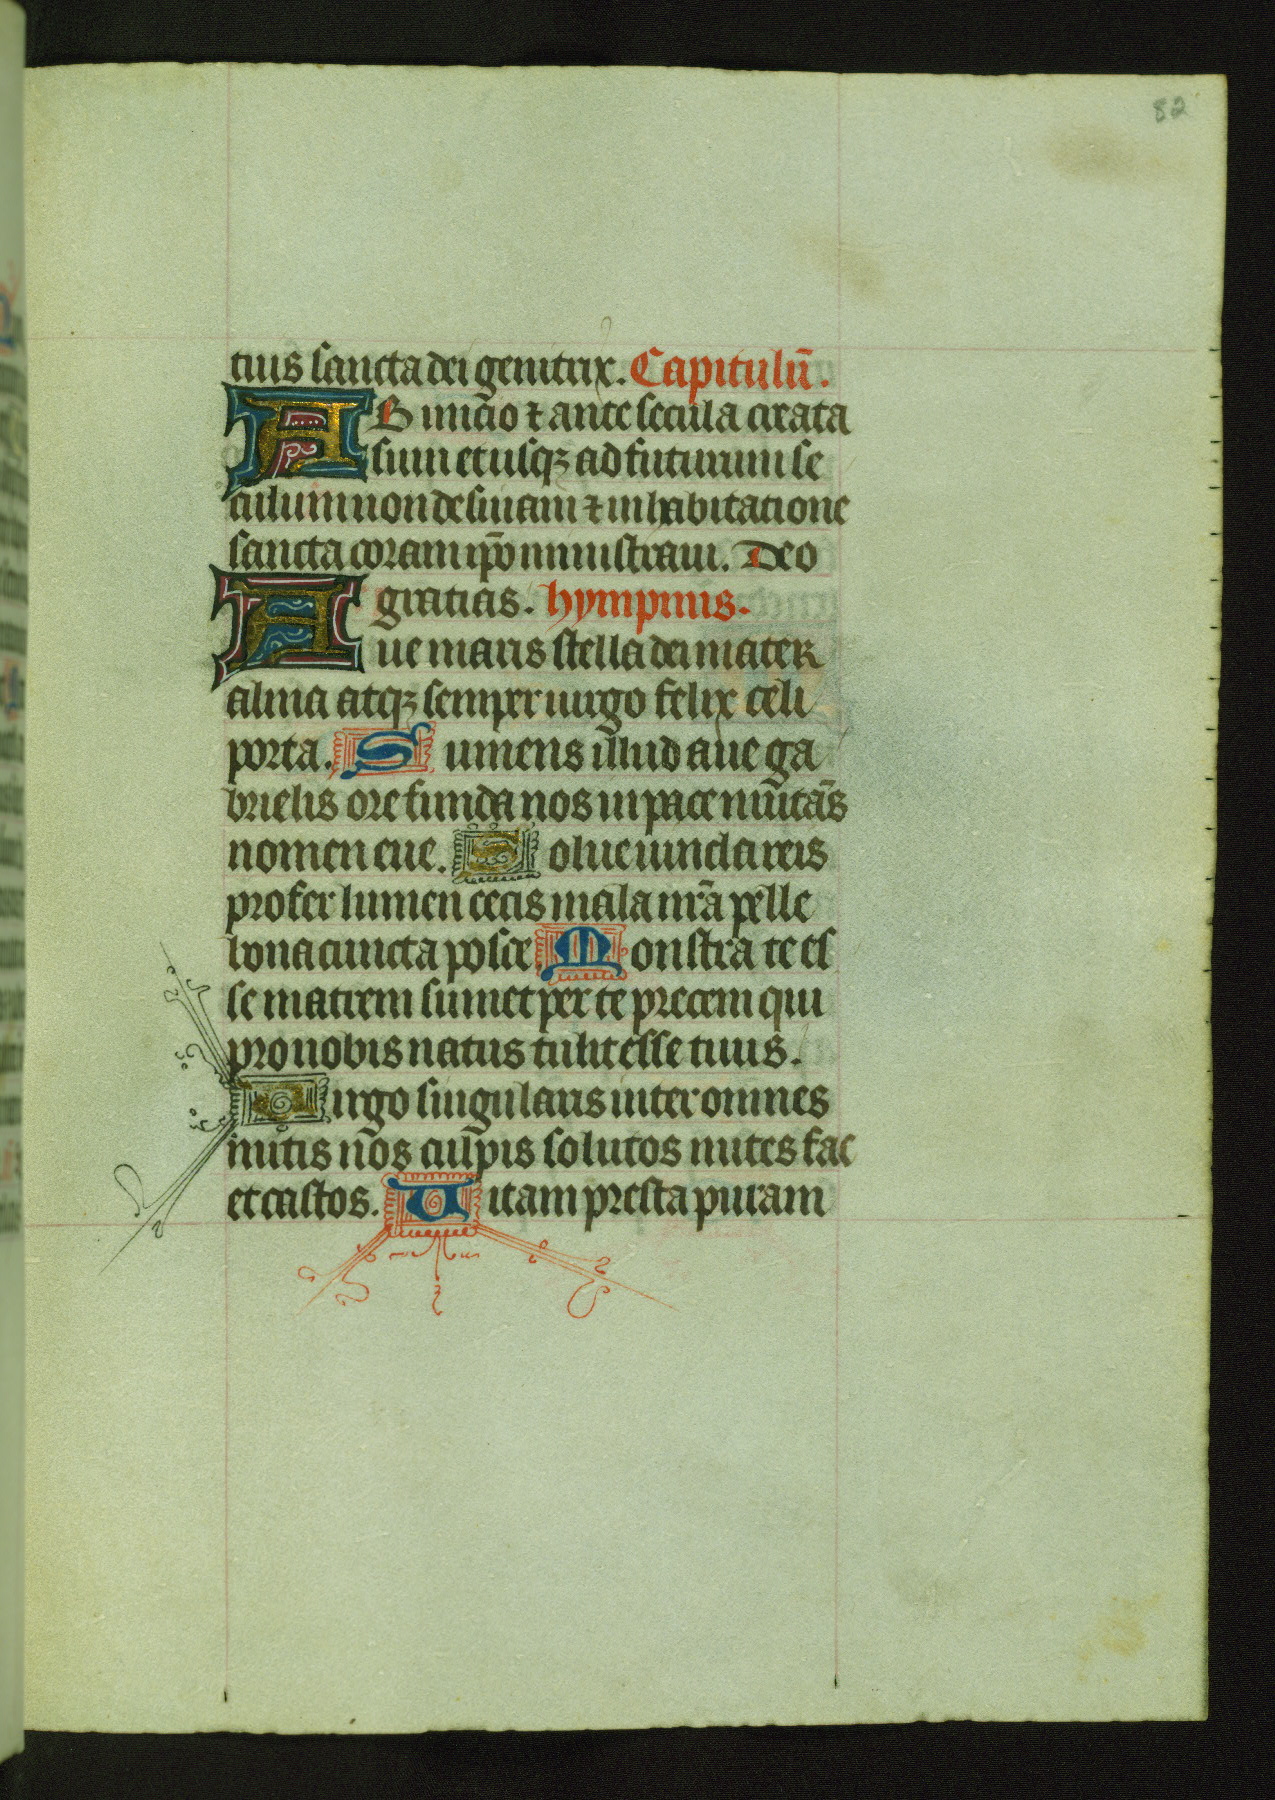 82
tuis sancta dei genitrix. Capitulū.
AB inicio ⁊ ante secula creata
sum et usqꝫ ad futurum se
culum non desinam ⁊ in habitatione
sancta coram ip̄o ministraui. Deo
gratias. hympnus.
Aue maris stella dei mater
alma atqꝫ semper uirgo felix celi
porta. Sumens illud aue ga
brielis ore funda nos in pace mutās
nomen eue. Solue uincla reis
profer lumen cecis mala nr̄a pelle
bona cuncta posce Monstra te es
se matrem sumet per te precem qui
pro nobis natus tulit esse tuus.
Uirgo singularis inter omnes
mitis nos culpis solutos mites fac
et castos. Uitam presta puram